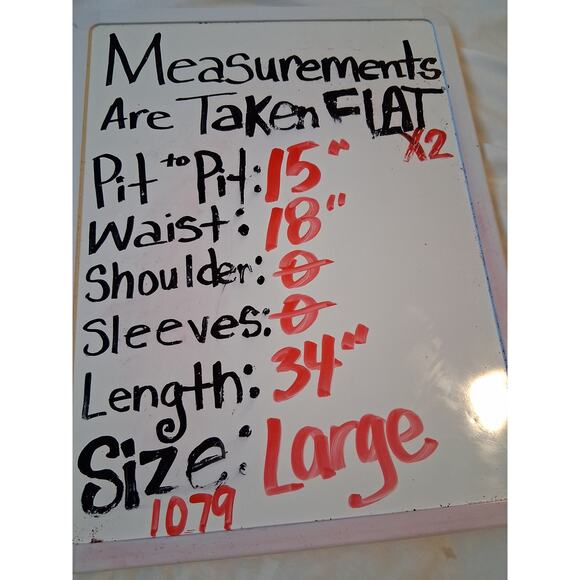 Measurements
Are Taken FLAT
X2
Pit to Pit: 15"
Waist: 18"
Shoulder: 0
Sleeves: 0
Length: 34"
Size: Large
1079